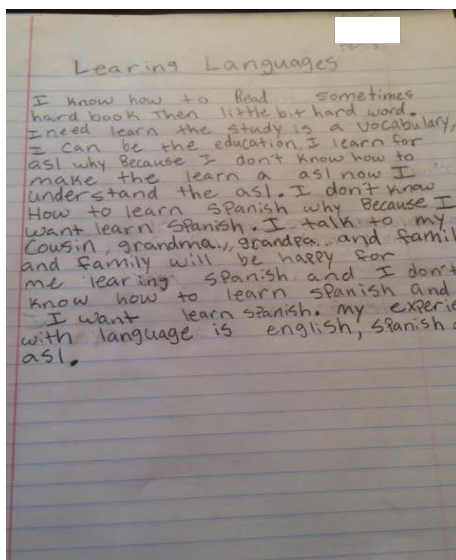 Learing Languages
I know how to Read sometimes
hard book Then little bit hard word.
I need learn the study is a vocabulary,
I can be the education, I learn for
asl why Because I don't know how to
make the learn a asl now I
understand the asl. I don't know
How to learn spanish why Because I
want learn spanish. I talk to my
cousin, grandma, grandpa and famil
and family will be happy for
me learing spanish and I don't
know how to learn spanish and
I want learn spanish. my experie
with language is english, spanish
asl.